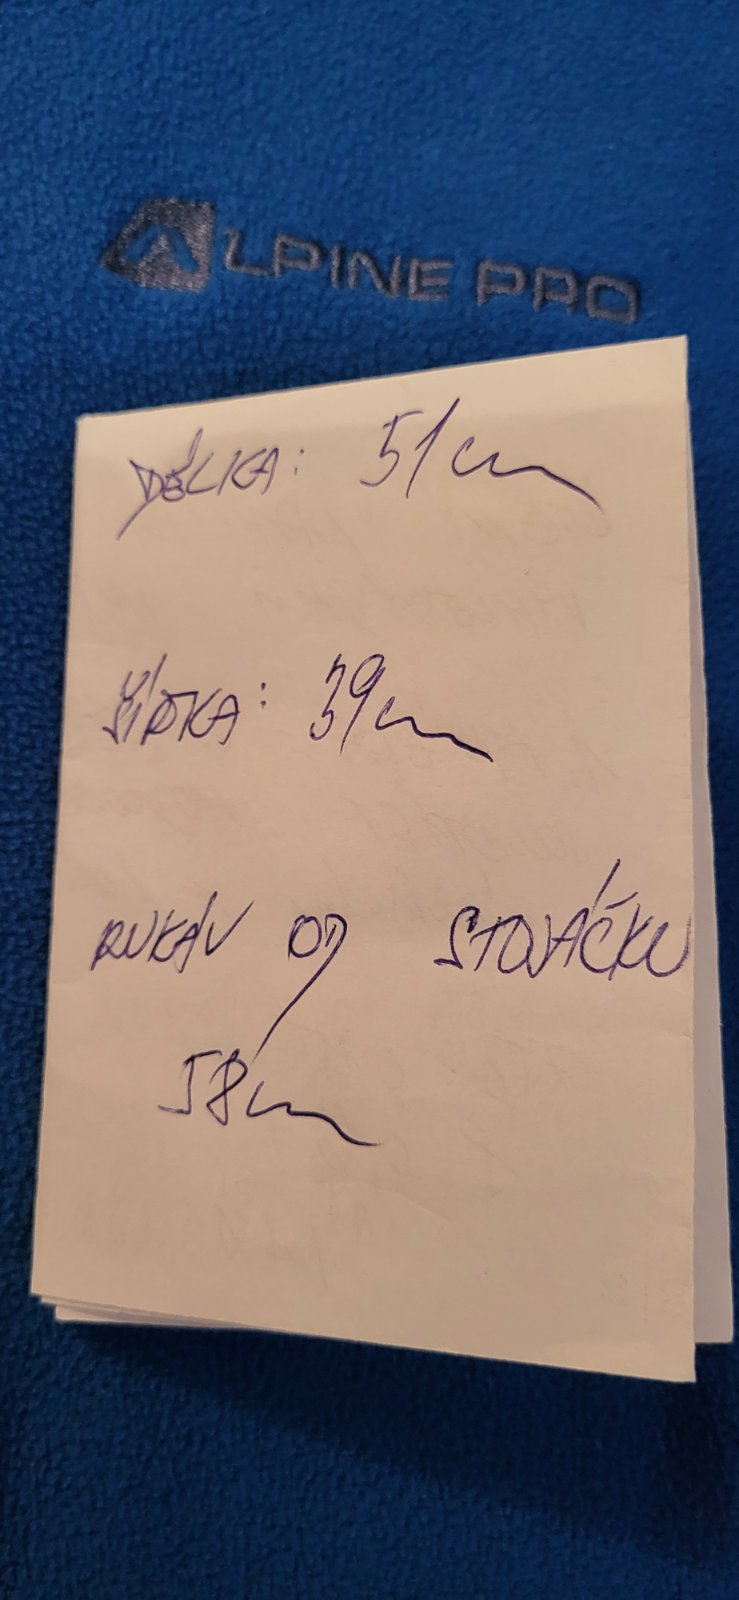 ALPINE PRO
DÉLKA: 51cm
ŠÍŘKA: 39cm
RUKÁV OD STOJÁČKU
58cm